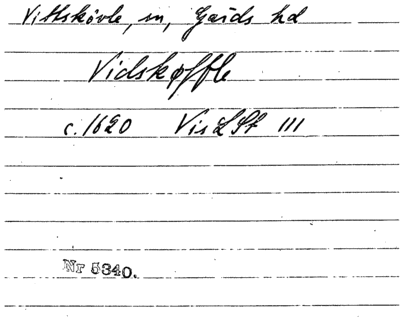 Vittskövle, sn, Gärds hd
Vidskøffle
c. 1620 Vis L St III
Nr 5340.